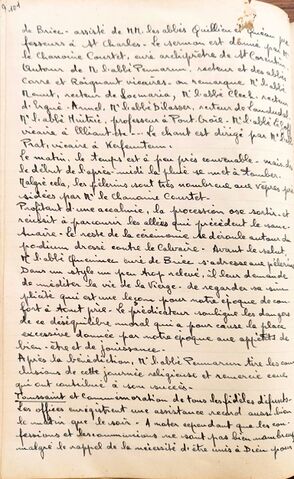 de Briec - assisté de MM. les abbés Quillien et
fesseurs à St Charles. Le sermon est donné par M.
le Chanoine Courtet, curé archiprêtre de St Corentin
Autour de M. l'abbé Pennarun, recteur et des abbés
Corre et Raignant vicaires, on remarque, M. l'abbé
recteur de Locmaria, M. l'abbé Clech, recteur
d'Ergué-Armel, M. l'abbé Bilasser, recteur de Landudal
M. l'abbé professeur à Pont-Croix, M. l'abbé
vicaire à Elliant etc... Le chant est dirigé par M. l'abbé
Prat, vicaire à Kerfeunteun.
Le matin, le temps est à peu près convenable - mais dès
le début de l'après-midi la pluie se met à tomber.
Malgré cela, les pèlerins sont très nombreux aux vêpres pré-
sidées par Mr le Chanoine Courtet.
Profitant d'une accalmie, la procession ose sortir et
réussit à parcourir les allées qui précèdent le sanc-
tuaire. Le reste de la cérémonie se déroule autour du
podium dressé contre le Calvaire. Avant le salut
M. l'abbé curé de Briec s'adresse aux pèlerins
Dans un style un peu trop relevé, il leur demande
de méditer la vie de la Vierge, de regarder sa sim-
plicité qui est une leçon pour notre époque de con-
fort à tout prix. Le prédicateur souligne les dangers
de ce déséquilibre moral qui a pour cause la place
excessive donnée par notre époque aux appétits de
bien-être et de jouissance.
Après la bénédiction, Mr l'abbé Pennarun tire les con-
clusions de cette journée religieuse et remercie ceux
qui ont contribué à son succès.
Toussaint et commémoration de tous les fidèles défunts.
Les offices enregistrent une assistance record aussi bien
le matin que le soir. A noter cependant que les con-
fessions et les communions ne sont pas bien nombreuses
malgré le rappel de la nécessité de être unis à Dieu pour